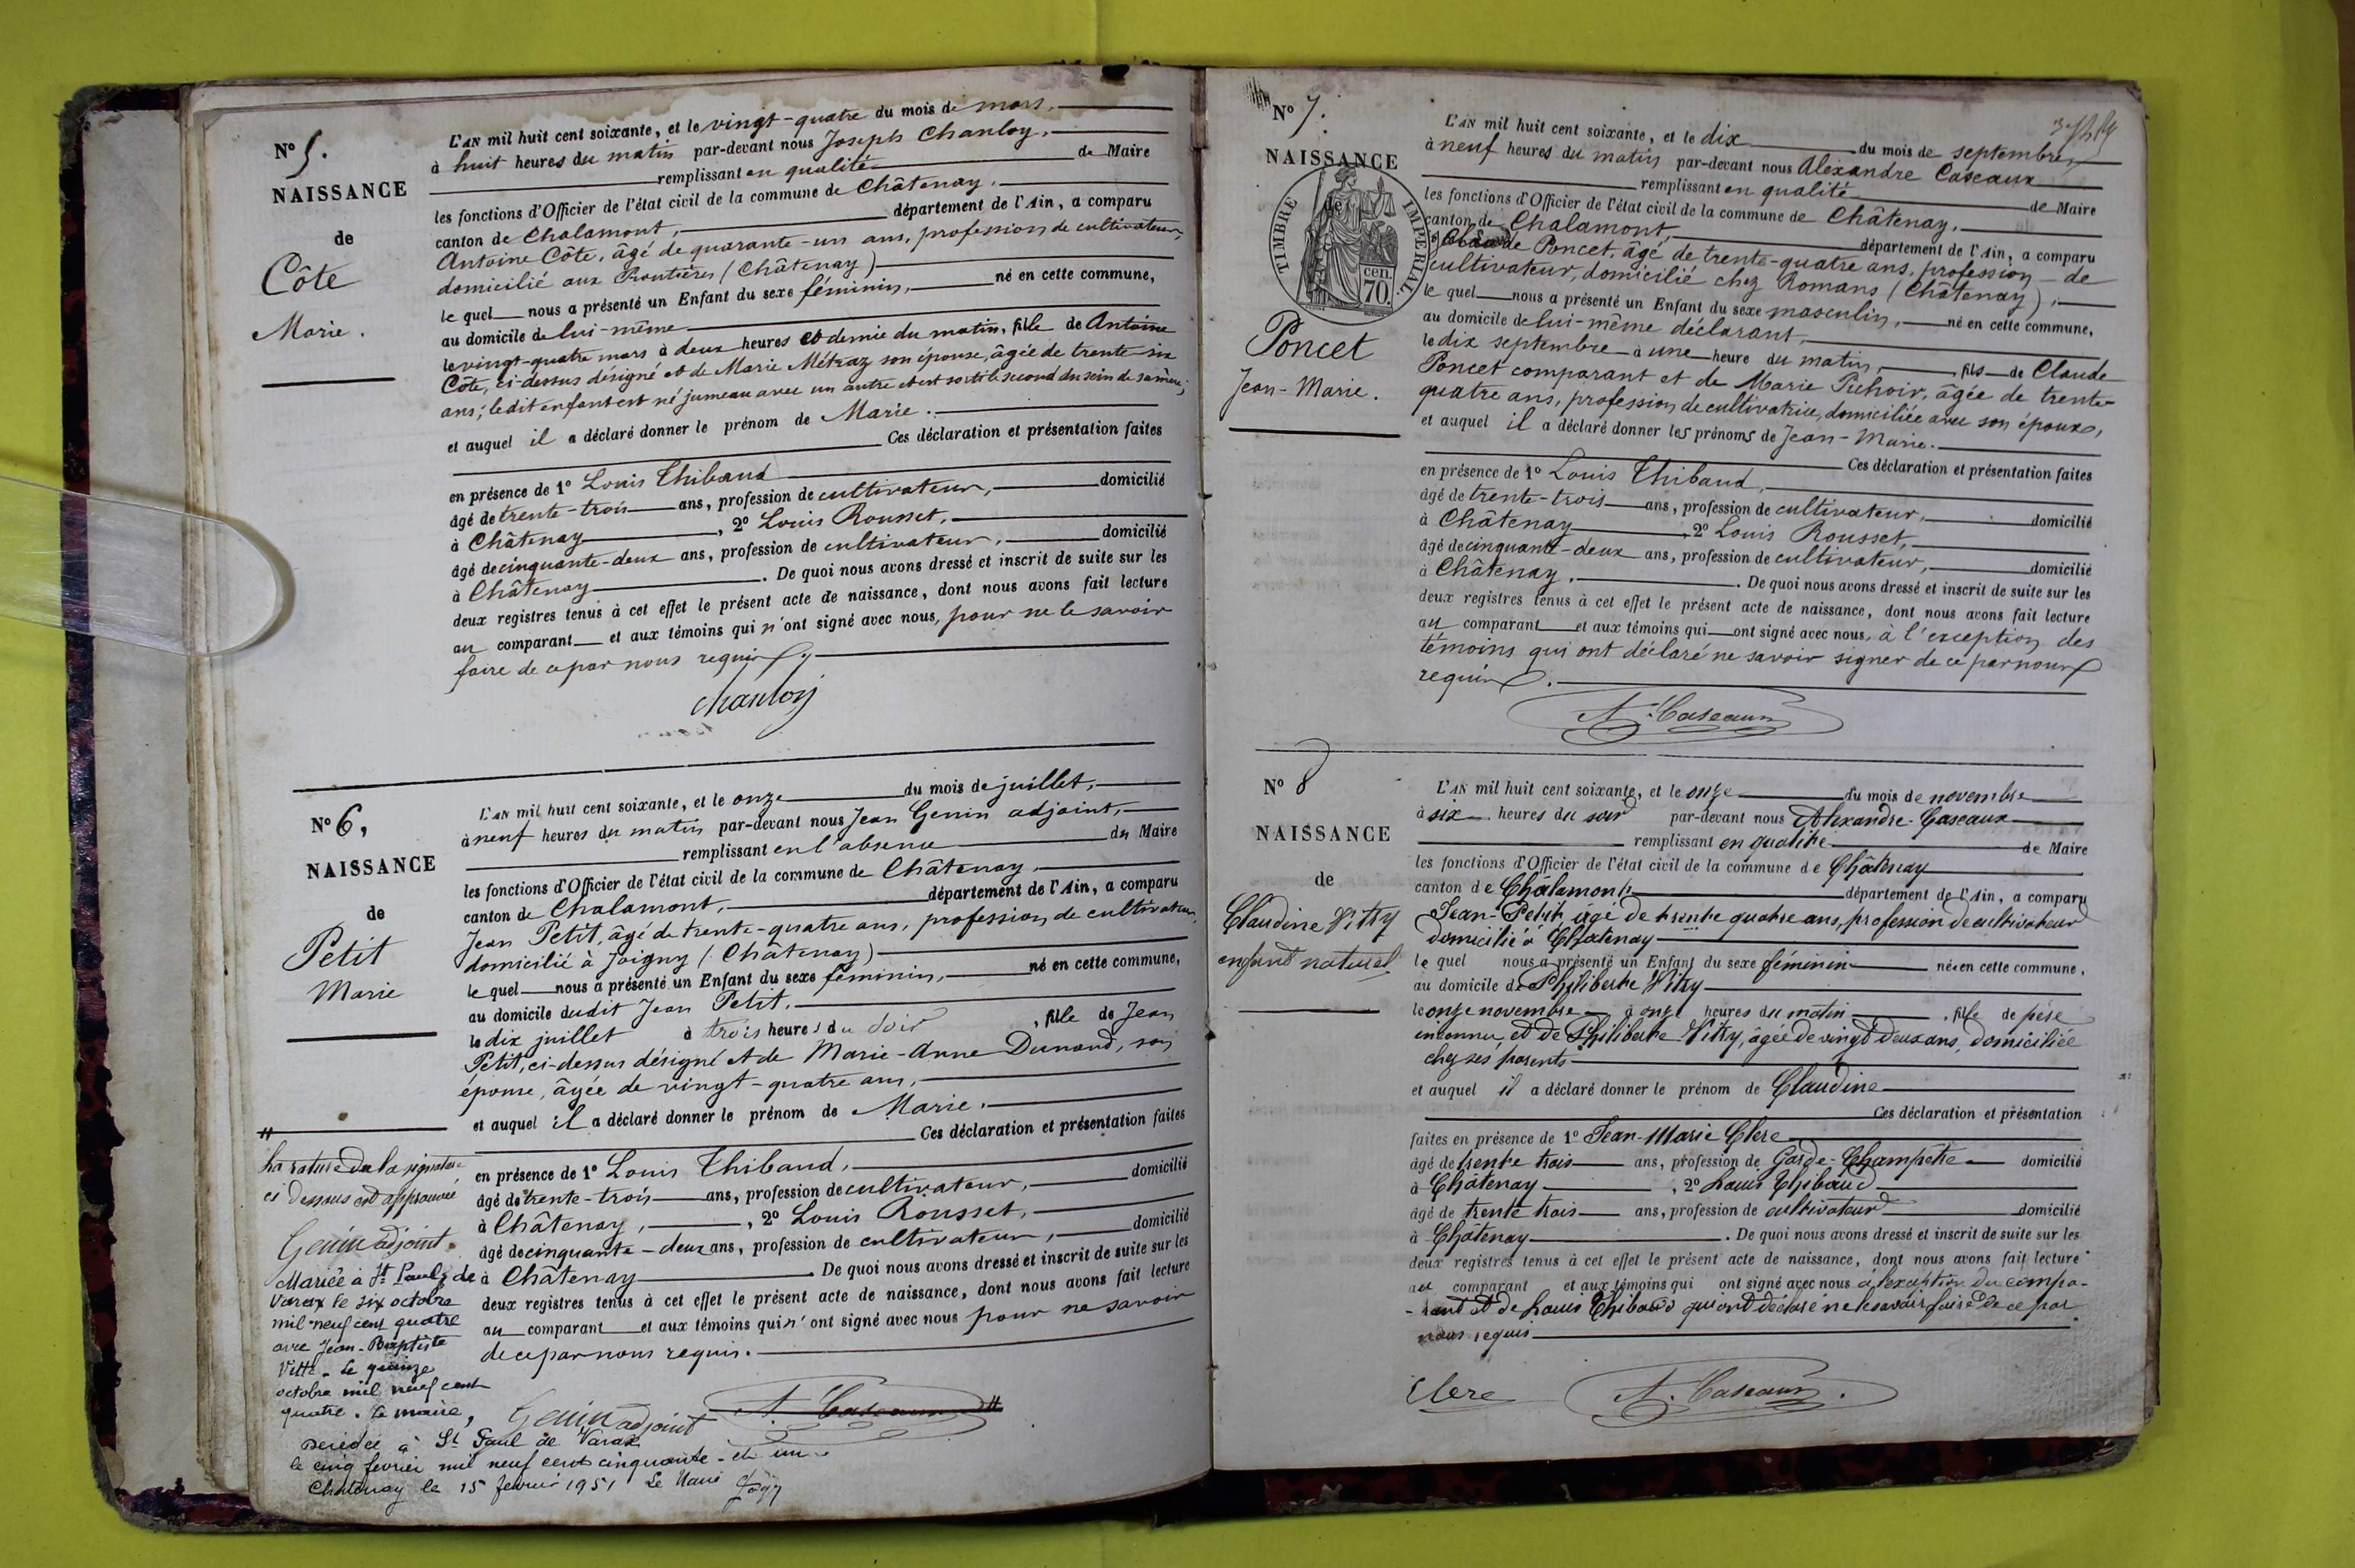 N° 5.
NAISSANCE
de
Côte
Marie.
L'AN mil huit cent soixante, et le vingt-quatre du mois de mars.
à huit heures du matin par-devant nous Joseph Chanloy,
remplissant en qualité de Maire
les fonctions d'Officier de l'état civil de la commune de Châtenay.
canton de Chalamont, département de l'Ain, a comparu
Antoine Côte, âgé de quarante-un ans, profession de cultivateur,
domicilié aux (Châtenay)
le quel nous a présenté un Enfant du sexe féminin, né en cette commune,
au domicile de lui-même
le vingt-quatre mars à deux heures et demie du matin, fille de Antoine
Côte, ci-dessus désigné et de Marie Métraz son épouse, âgée de trente-six
ans; ledit enfant est né jumeau avec un autre et est sorti le second du sein de sa mère;
et auquel il a déclaré donner le prénom de Marie.
Ces déclaration et présentation faites
en présence de 1° Louis Thibaud
âgé de trente-trois ans, profession de cultivateur, domicilié
à Châtenay, 2° Louis Rousset,
âgé de cinquante-deux ans, profession de cultivateur, domicilié
à Châtenay. De quoi nous avons dressé et inscrit de suite sur les
deux registres tenus à cet effet le présent acte de naissance, dont nous avons fait lecture
au comparant et aux témoins qui n'ont signé avec nous, pour ne le savoir
faire de ce par nous requis.
Chanloy
N° 6,
NAISSANCE
de
Petit
Marie
L'AN mil huit cent soixante, et le onze du mois de juillet,
à neuf heures du matin par-devant nous Jean Genin adjoint,
remplissant en l'absence du Maire
les fonctions d'Officier de l'état civil de la commune de Châtenay,
canton de Chalamont, département de l'Ain, a comparu
Jean Petit, âgé de trente-quatre ans, profession de cultivateur,
domicilié à Joigny (Châtenay)
le quel nous a présenté un Enfant du sexe féminin, né en cette commune,
au domicile dudit Jean Petit,
le dix juillet à trois heures du soir, fille de Jean
Petit, ci-dessus désigné et de Marie-Anne Dunand, son
épouse, âgée de vingt-quatre ans,
et auquel il a déclaré donner le prénom de Marie.
Ces déclaration et présentation faites
en présence de 1° Louis Thibaud,
âgé de trente-trois ans, profession de cultivateur, domicilié
à Châtenay, 2° Louis Rousset,
âgé de cinquante-deux ans, profession de cultivateur, domicilié
à Châtenay. De quoi nous avons dressé et inscrit de suite sur les
deux registres tenus à cet effet le présent acte de naissance, dont nous avons fait lecture
au comparant et aux témoins qui n'ont signé avec nous pour ne savoir
de ce par nous requis.
Genin adjoint A. Caseaux
La rature de la signature
ci dessous est approuvée
Genin adjoint
Mariée à St Paul de
Varax le six octobre
mil neuf cent quatre
avec Jean-Baptiste
Vitte. Le quinze
octobre mil neuf cent
quatre. Le maire,
Décédée à St Paul de Varax
le cinq février mil neuf cent cinquante-et-un
Chatenay le 15 février 1951 Le Maire
N° 7.
NAISSANCE
de
TIMBRE IMPERIAL
70 cen.
Poncet
Jean-Marie.
L'AN mil huit cent soixante, et le dix du mois de septembre,
à neuf heures du matin par-devant nous Alexandre Caseaux
remplissant en qualité de Maire
les fonctions d'Officier de l'état civil de la commune de Châtenay,
canton de Chalamont, département de l'Ain, a comparu
Claude Poncet, âgé de trente-quatre ans, profession de
cultivateur, domicilié chez Romans (Châtenay),
le quel nous a présenté un Enfant du sexe masculin, né en cette commune,
au domicile de lui-même déclarant,
le dix septembre à une heure du matin, fils de Claude
Poncet comparant et de Marie Pichoir, âgée de trente-
quatre ans, profession de cultivatrice, domiciliée avec son époux,
et auquel il a déclaré donner les prénoms de Jean-Marie.
Ces déclaration et présentation faites
en présence de 1° Louis Thibaud,
âgé de trente-trois ans, profession de cultivateur, domicilié
à Châtenay, 2° Louis Rousset,
âgé de cinquante-deux ans, profession de cultivateur, domicilié
à Châtenay. De quoi nous avons dressé et inscrit de suite sur les
deux registres tenus à cet effet le présent acte de naissance, dont nous avons fait lecture
au comparant et aux témoins qui ont signé avec nous, à l'exception des
témoins qui ont déclaré ne savoir signer de ce par nous
requis.
A. Caseaux
N° 8
NAISSANCE
de
Claudine Vitry
enfant naturel
L'AN mil huit cent soixante, et le onze du mois de novembre
à six heures du soir par-devant nous Alexandre Caseaux
remplissant en qualité de Maire
les fonctions d'Officier de l'état civil de la commune de Châtenay
canton de Châlamont département de l'Ain, a comparu
Jean-Petit, âgé de trente quatre ans, profession de cultivateur
domicilié à Châtenay
le quel nous a présenté un Enfant du sexe féminin née en cette commune,
au domicile de Philiberte Vitry
le onze novembre à onze heures du matin, fille de père
inconnu, et de Philiberte Vitry, âgée de vingt deux ans, domiciliée
chez ses parents
et auquel il a déclaré donner le prénom de Claudine
Ces déclaration et présentation
faites en présence de 1° Jean-Marie Clere
âgé de trente trois ans, profession de Garde-Champêtre domicilié
à Châtenay, 2° Louis Thibaud
âgé de trente trois ans, profession de cultivateur domicilié
à Châtenay. De quoi nous avons dressé et inscrit de suite sur les
deux registres tenus à cet effet le présent acte de naissance, dont nous avons fait lecture
au comparant et aux témoins qui ont signé avec nous à l'exception du compa-
-rant et de Louis Thibaud qui ont déclaré ne le savoir faire de ce par
nous requis
Clere A. Caseaux